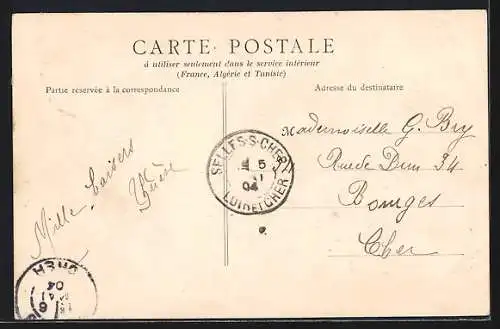 CARTE POSTALE
à utiliser seulement dans le service intérieur
(France, Algérie et Tunisie)
Partie reservée à la correspondance
Adresse du destinataire
Mille baisers
Mademoiselle G. Bry
Rue de Dun 34
Bourges
Cher
SELLES-S-CHER
5
11
04
LOIR-ET-CHER
CHER
04